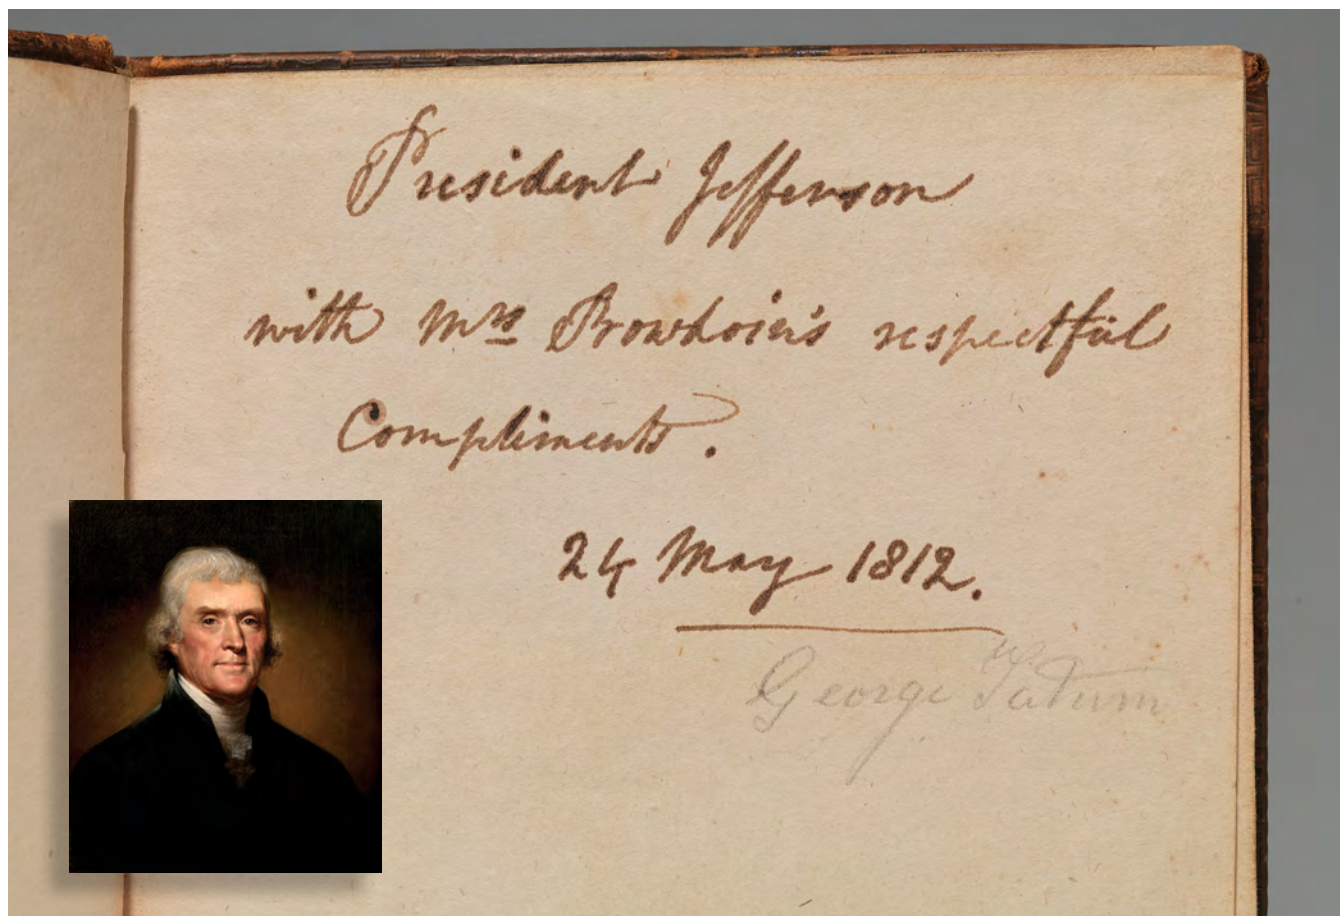 President Jefferson
with Mrs Bowdoin's respectful
Compliments.
24 May 1812.
George Tatum